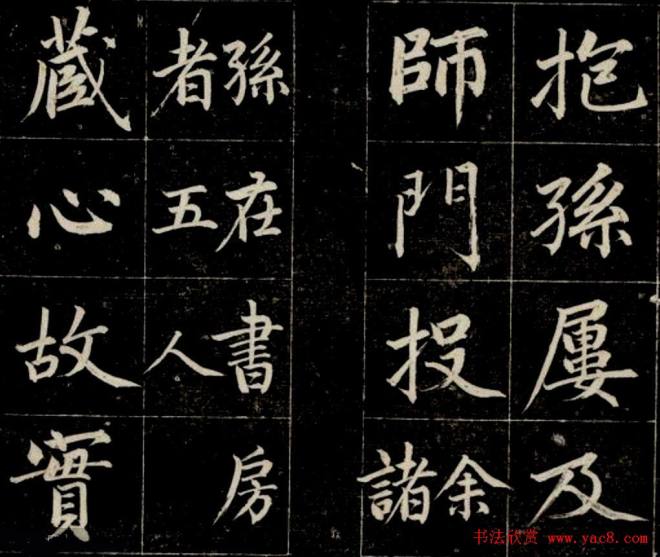 抱孫屢及
師門投余
諸
孫在書房
者五人
藏心故實
书法欣赏 www.yac8.com